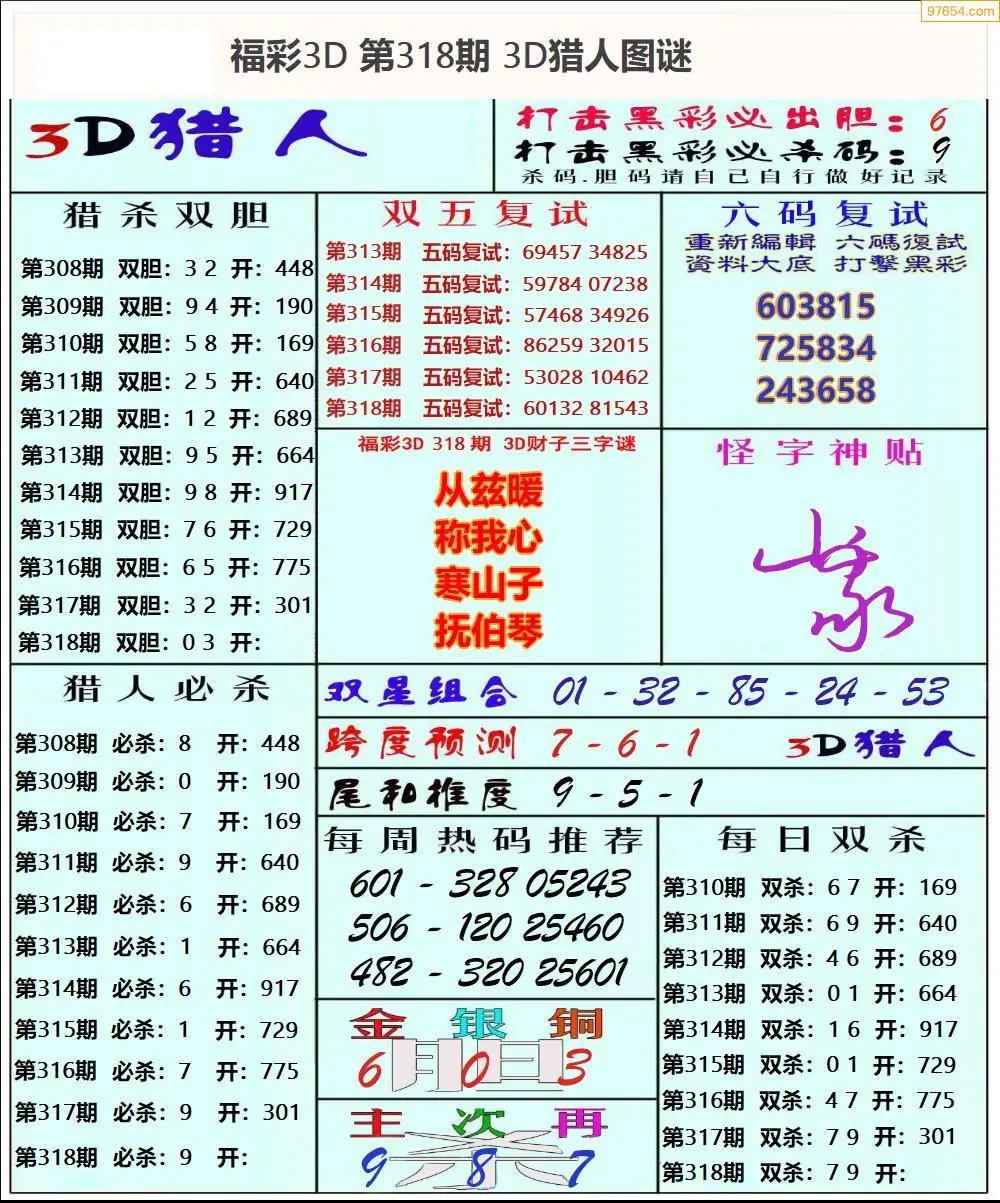 97654.com
福彩3D 第318期 3D猎人图谜
3D猎人
打击黑彩必出胆：6
打击黑彩必杀码：9
杀码.胆码请自己自行做好记录
猎杀双胆
第308期 双胆：3 2 开：448
第309期 双胆：9 4 开：190
第310期 双胆：5 8 开：169
第311期 双胆：2 5 开：640
第312期 双胆：1 2 开：689
第313期 双胆：9 5 开：664
第314期 双胆：9 8 开：917
第315期 双胆：7 6 开：729
第316期 双胆：6 5 开：775
第317期 双胆：3 2 开：301
第318期 双胆：0 3 开：
双五复试
第313期 五码复试：69457 34825
第314期 五码复试：59784 07238
第315期 五码复试：57468 34926
第316期 五码复试：86259 32015
第317期 五码复试：53028 10462
第318期 五码复试：60132 81543
六码复试
重新編輯 六碼復試
資料大底 打擊黑彩
603815
725834
243658
福彩3D 318 期 3D财子三字谜
从兹暖
称我心
寒山子
抚伯琴
怪字神贴
猎人必杀
第308期 必杀：8 开：448
第309期 必杀：0 开：190
第310期 必杀：7 开：169
第311期 必杀：9 开：640
第312期 必杀：6 开：689
第313期 必杀：1 开：664
第314期 必杀：6 开：917
第315期 必杀：1 开：729
第316期 必杀：7 开：775
第317期 必杀：9 开：301
第318期 必杀：9 开：
双星组合 01 - 32 - 85 - 24 - 53
跨度预测 7 - 6 - 1 3D猎人
尾和推度 9 - 5 - 1
每周热码推荐
601 - 328 05243
506 - 120 25460
482 - 320 25601
金 银 铜
胆
6 0 3
主 次 再
杀
9 8 7
每日双杀
第310期 双杀：6 7 开：169
第311期 双杀：6 9 开：640
第312期 双杀：4 6 开：689
第313期 双杀：0 1 开：664
第314期 双杀：1 6 开：917
第315期 双杀：0 1 开：729
第316期 双杀：4 7 开：775
第317期 双杀：7 9 开：301
第318期 双杀：7 9 开：